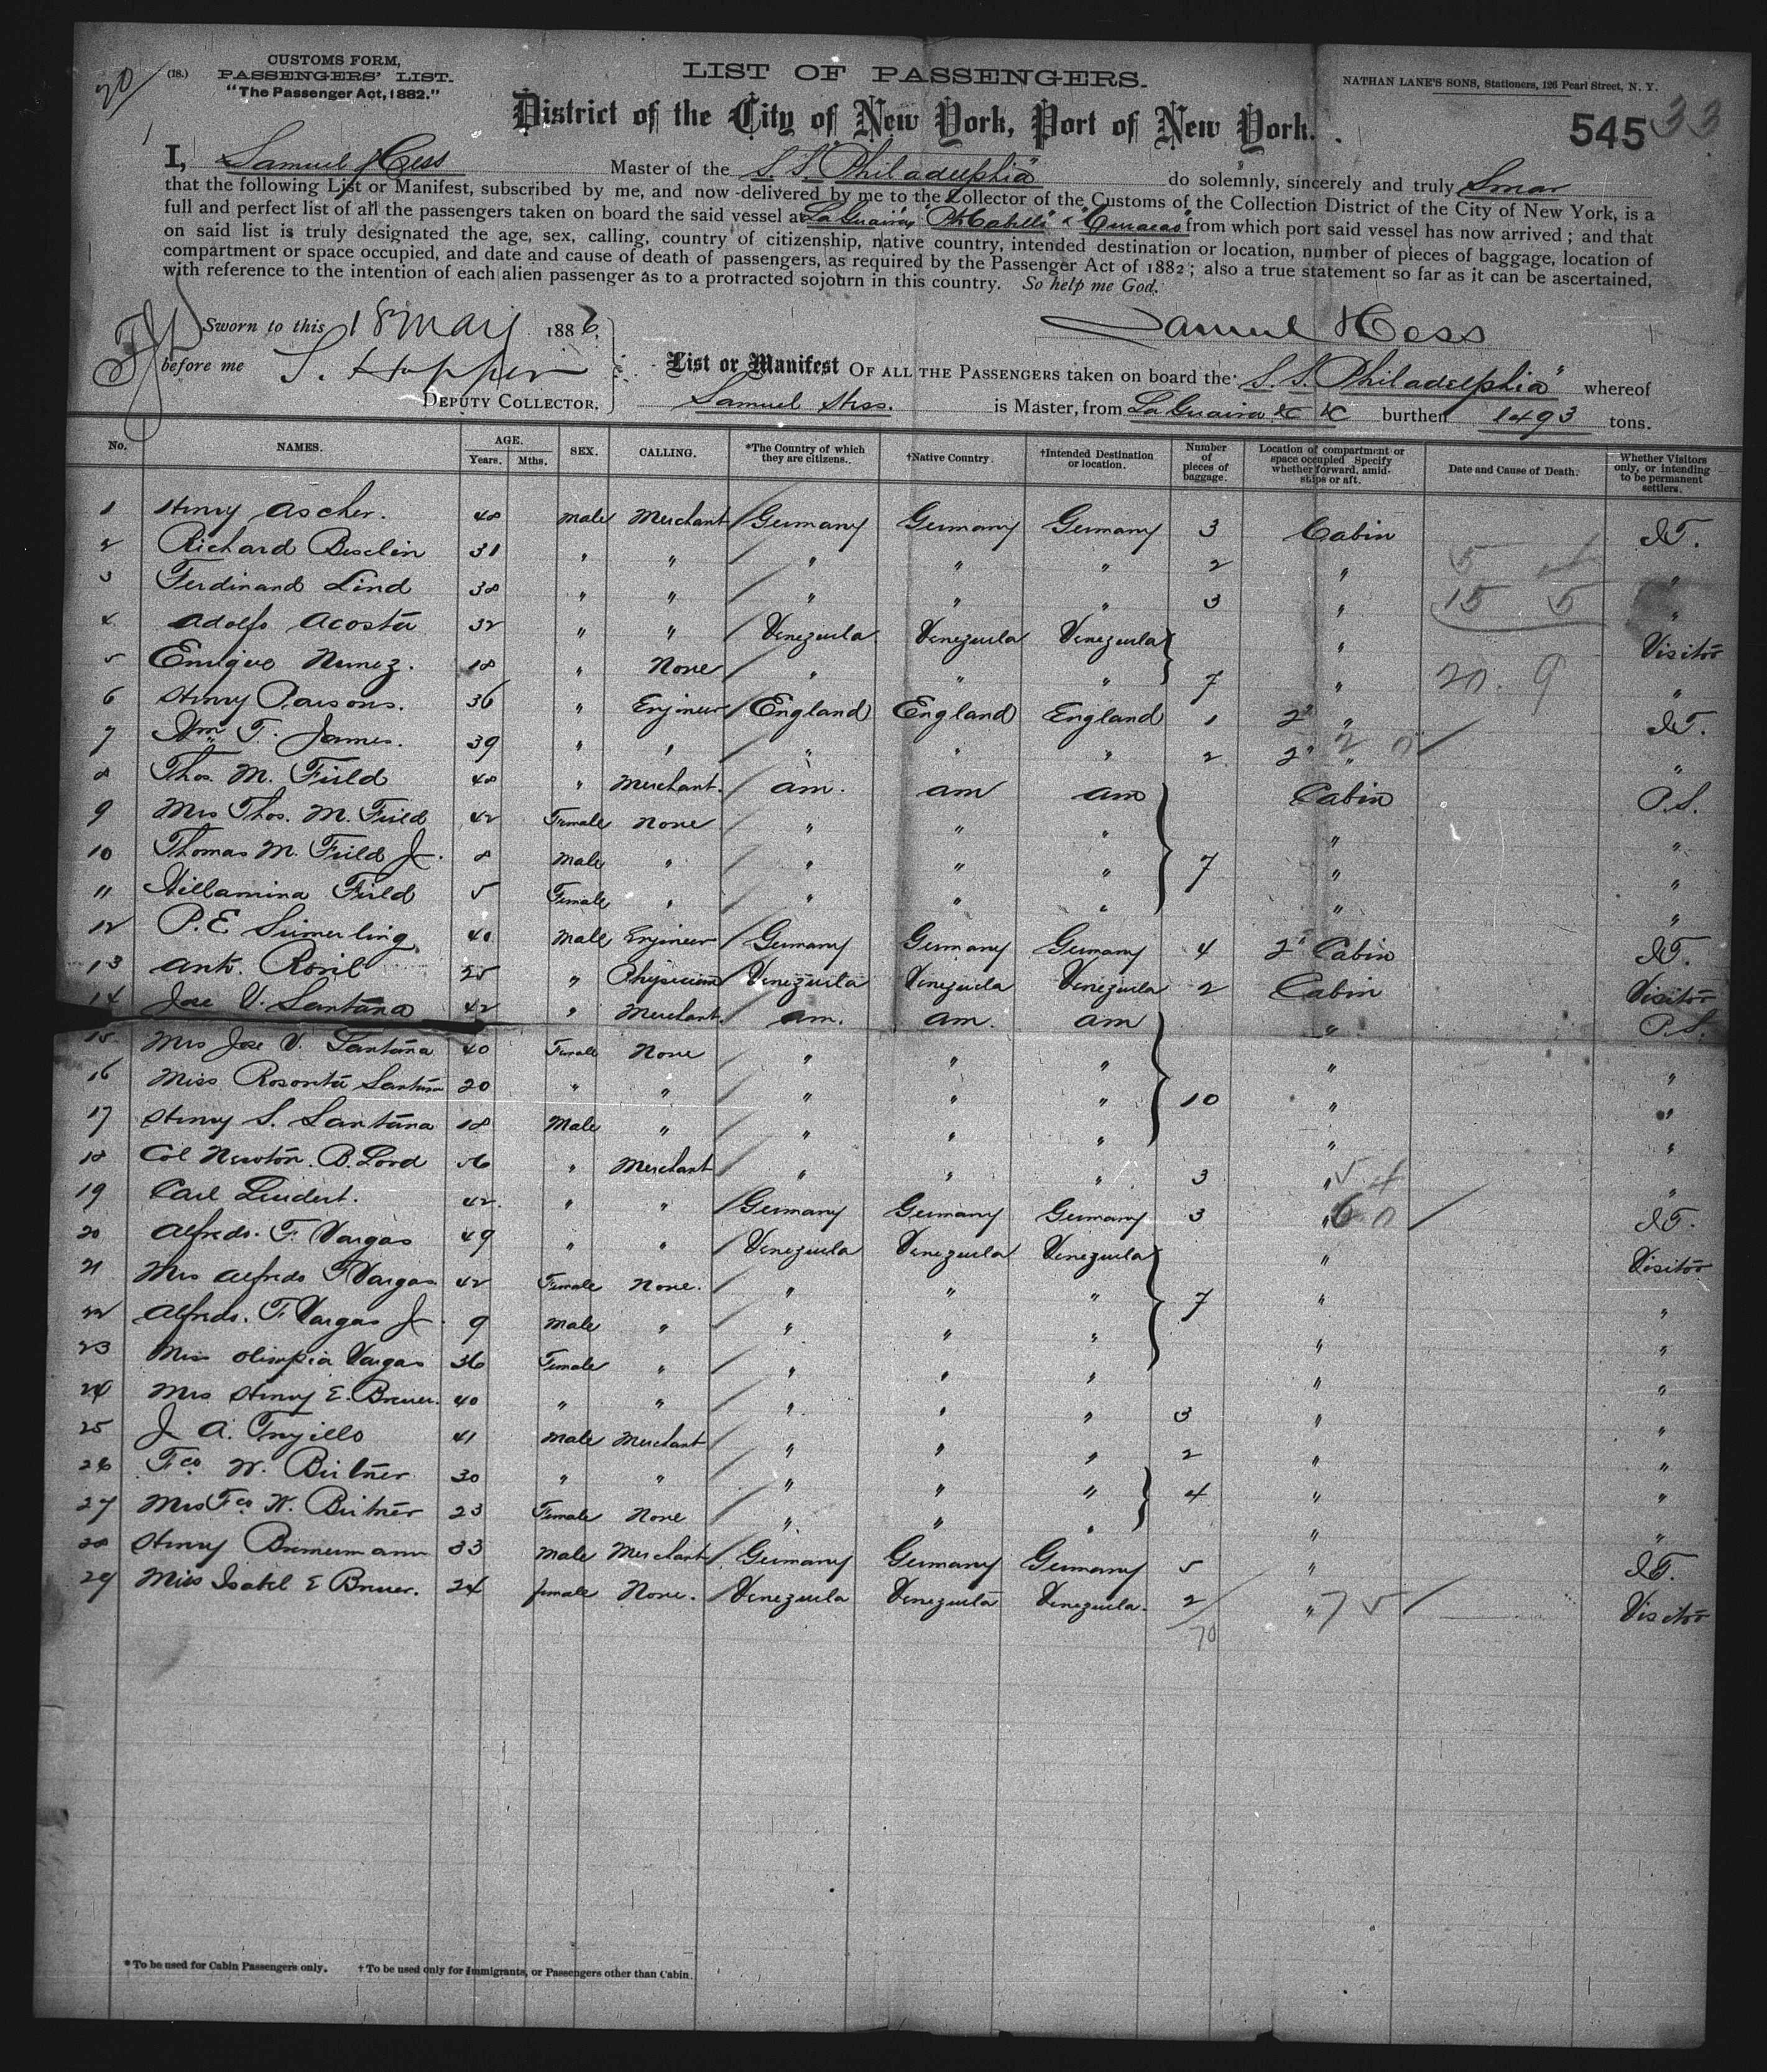 20
(18.)
CUSTOMS FORM,
PASSENGERS' LIST.
"The Passenger Act, 1882."
LIST OF PASSENGERS.
NATHAN LANE'S SONS, Stationers, 126 Pearl Street, N. Y.
District of the City of New York, Port of New York.
545 33
I, Samuel Hess Master of the S. S. "Philadelphia" do solemnly, sincerely and truly Swear
that the following List or Manifest, subscribed by me, and now delivered by me to the Collector of the Customs of the Collection District of the City of New York, is a
full and perfect list of all the passengers taken on board the said vessel at La Guaira, Pto Cabello & Curacao from which port said vessel has now arrived; and that
on said list is truly designated the age, sex, calling, country of citizenship, native country, intended destination or location, number of pieces of baggage, location of
compartment or space occupied, and date and cause of death of passengers, as required by the Passenger Act of 1882; also a true statement so far as it can be ascertained,
with reference to the intention of each alien passenger as to a protracted sojourn in this country. So help me God.
Sworn to this 18 May 1886
Samuel Hess
before me S. Hopper
DEPUTY COLLECTOR.
List or Manifest OF ALL THE PASSENGERS taken on board the S. S. "Philadelphia" whereof
Samuel Hess. is Master, from La Guaira &c &c burthen 1493 tons.
No. NAMES. AGE. Years. Mths. SEX. CALLING. *The Country of which they are citizens. †Native Country. †Intended Destination or location. Number of pieces of baggage. Location of compartment or space occupied Specify whether forward, amidships or aft. Date and Cause of Death. Whether Visitors only, or intending to be permanent settlers.
1 Henry Ascher. 48 Male Merchant Germany Germany Germany 3 Cabin I.T.
2 Richard 31 " " " " " 2 " "
3 Ferdinand Lind 38 " " " " " 3 " "
4 Adolfo Acosta 32 " " Venezuela Venezuela Venezuela " Visitor
5 Enrique Nunez. 18 " None " " " 7 " "
6 Henry Parsons. 36 " Engineer England England England 1 2" " I.T.
7 Wm T. James. 39 " " " " " 2 2" " "
8 Thos. M. Field 48 " Merchant. Am. Am Am Cabin P.S.
9 Mrs Thos. M. Field 42 Female None " " " " "
10 Thomas M. Field Jr. 8 Male " " " " 7 " "
11 Willamina Field 5 Female " " " " " "
12 P. E 40 Male Engineer Germany Germany Germany 4 2" Cabin I.T.
13 Anto. 25 " Physician Venezuela Venezuela Venezuela 2 Cabin Visitor
14 Jose V. Santana 42 " Merchant. Am. Am. Am " P.S.
15 Mrs Jose V. Santana 40 Female None " " " " "
16 Miss Rosonta Santana 20 " " " " " 10 " "
17 Henry S. Santana 18 Male " " " " " "
18 Col Newton. B. Lord 56 " Merchant " " " 3 " "
19 Carl 42. " " Germany Germany Germany 3 " I.T.
20 Alfredo. F. Vargas 49 " " Venezuela Venezuela Venezuela " Visitor
21 Mrs Alfredo F Vargas 42 Female None. " " " 7 " "
22 Alfredo. F. Vargas Jr. 9 Male " " " " " "
23 Miss Olimpia Vargas 36 Female " " " " " "
24 Mrs Henry E. Brewer. 40 " " " " " 3 " "
25 J A. Trujillo 41 Male Merchant " " " 2 " "
26 Fco W. Birtner 30 " " " " " 4 " "
27 Mrs Fco W. Birtner 23 Female None " " " " "
28 Henry Bremermann 33 Male Merchant Germany Germany Germany 5 " I.T.
29 Miss Isabel E Brewer. 24 female None. Venezuela Venezuela Venezuela. 2 " 75 Visitor
70
* To be used for Cabin Passengers only. † To be used only for Immigrants, or Passengers other than Cabin.